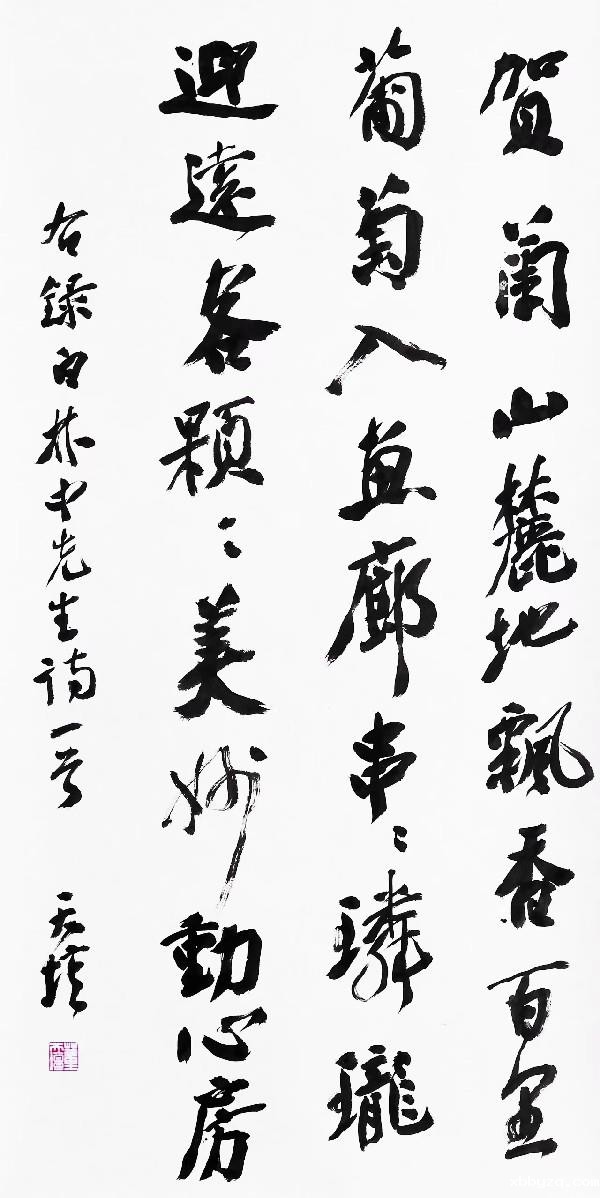 賀蘭山麓地飄香百里
葡萄入畫廊串〻璘瓏
迎遠客顆〻美妙動心房
右錄白林中先生詩一首